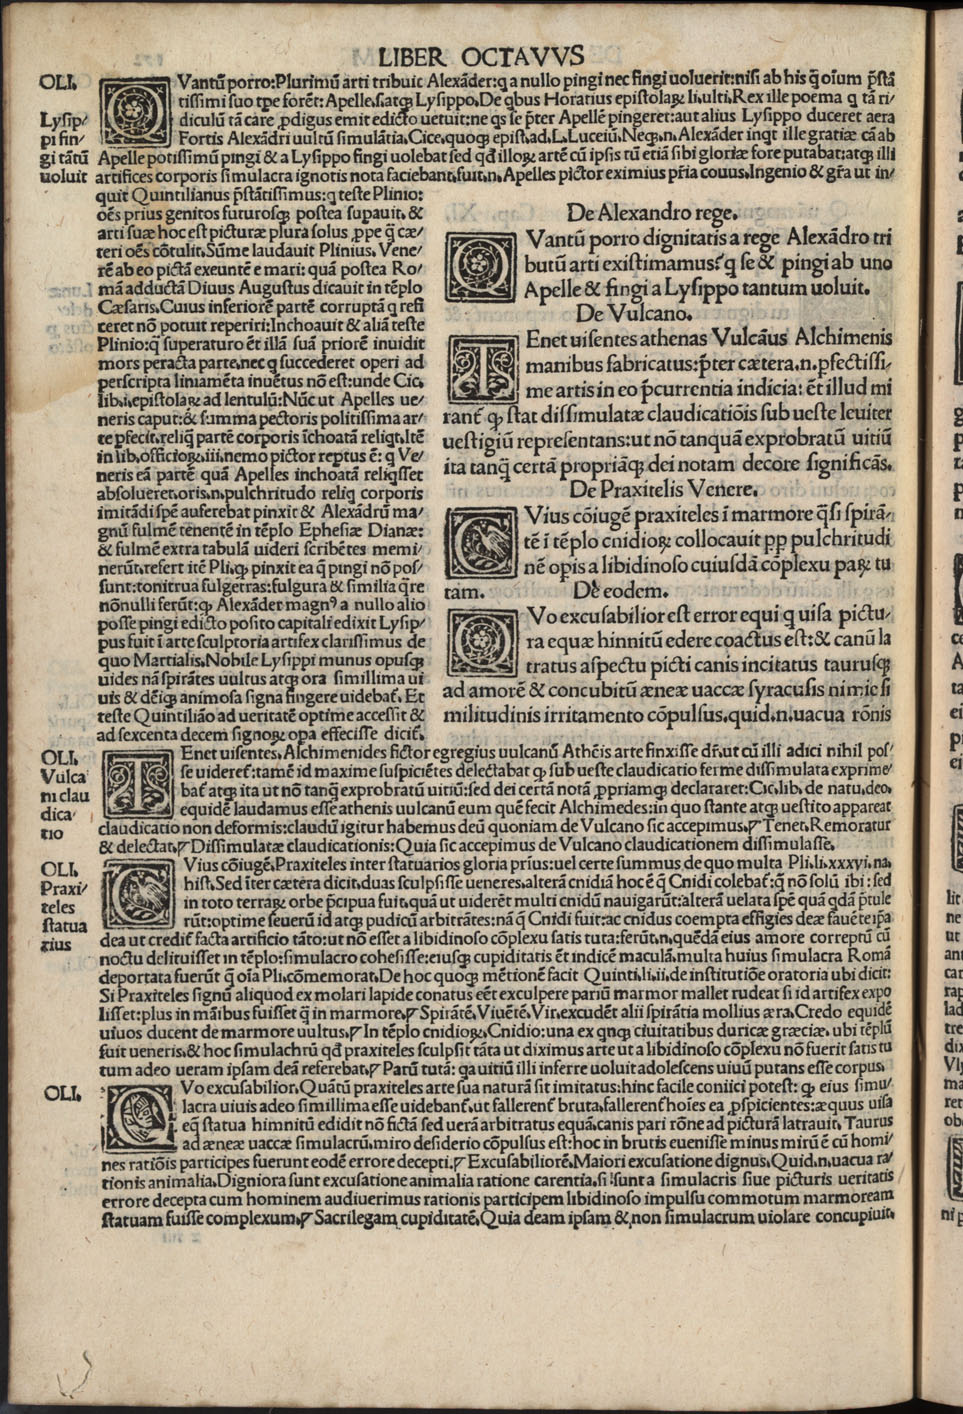 LIBER OCTAVVS
OLI.
Lysip/
pi fin/
gi tãtũ
uoluit
Vantũ porro: Plurimũ arti tribuit Alexãder: q a nullo pingi nec fingi uoluerit: nisi ab his q̃ oĩum p̃stã
tissimi suo tpe forẽt: Apelle. s. atqꝫ Lysippo. De qbus Horatius epistolaꝝ li. ulti. Rex ille poema q tã ri/
diculũ tã care ꝓdigus emit edicto uetuit: ne qs se p̃ter Apellẽ pingeret: aut alius Lysippo duceret aera
Fortis Alexãdri uultũ simulãtia. Cice. quoqꝫ epist. ad. L. Luceiũ. Neqꝫ. n. Alexãder inqt ille gratiæ cã ab
Apelle potissimũ pingi & a Lysippo fingi uolebat sed qđ illoꝝ artẽ cũ ipsis tũ etiã sibi gloriæ fore putabat: atqꝫ illi
artifices corporis simulacra ignotis nota faciebant. fuit. n. Apelles pictor eximius p̃ria couus. Ingenio & gr̃a ut in/
quit Quintilianus p̃stãtissimus: q teste Plinio:
oẽs prius genitos futurosqꝫ postea supauit. &
arti suæ hoc est picturæ plura solus ꝓpe q̃ cæ/
teri oẽs cõtulit. Sũme laudauit Plinius. Vene/
rẽ ab eo pictã exeuntẽ e mari: quã postea Ro/
mã adductã Diuus Augustus dicauit in tẽplo
Cæsaris. Cuius inferiorẽ partẽ corruptã q refi
ceret nõ potuit reperiri: Inchoauit & aliã teste
Plinio: q superaturo ẽt illã suã priorẽ inuidit
mors peracta parte. nec q succederet operi ad
perscripta liniamẽta inuẽtus nõ est: unde Cic.
lib. i. epistolaꝝ ad lentulũ: Nũc ut Apelles ue/
neris caput: & summa pectoris politissima ar/
te pfecit. reliq̃ partẽ corporis ĩchoatã reliqt. Itẽ
in lib. officioꝝ. iii. nemo pictor reptus ẽ: q Ve/
neris eã partẽ quã Apelles inchoatã reliqsset
absolueret. oris. n. pulchritudo reliq corporis
imitãdi spẽ auferebat pinxit & Alexãdrũ ma/
gnũ fulmẽ tenentẽ in tẽplo Ephesiæ Dianæ:
& fulmẽ extra tabulã uideri scribẽtes memi/
nerũt. refert itẽ Pli. qꝫ pinxit ea q̃ pingi nõ pos/
sunt: tonitrua fulgetras: fulgura & similia q̃re
nõnulli ferũt: qꝫ Alexãder magnꝰ a nullo alio
posse pingi edicto posito capitali edixit Lysip/
pus fuit ĩ arte sculptoria artifex clarissimus de
quo Martialis. Nobile Lysippi munus opusqꝫ
uides nã spirãtes uultus atqꝫ ora simillima ui
uis & dẽiqꝫ animosa signa fingere uidebat̃. Et
teste Quintiliãο ad ueritatẽ optime accessit &
ad sexcenta decem signoꝝ opa effecisse dicit̃.
De Alexandro rege.
Vantũ porro dignitatis a rege Alexãdro tri
butũ arti existimamus: q se & pingi ab uno
Apelle & fingi a Lysippo tantum uoluit.
De Vulcano.
Enet uisentes athenas Vulcãus Alchimenis
manibus fabricatus: p̃ter cætera. n. pfectissi/
me artis in eo p̃currentia indicia: ẽt illud mi
rant̃ qꝫ stat dissimulatæ claudicatiõis sub ueste leuiter
uestigiũ repræsentans: ut nõ tanquã exprobratũ uitiũ
ita tanq̃ certã propriãqꝫ dei notam decore significãs.
De Praxitelis Venere.
Vius cõiugẽ praxiteles ĩ marmore q̃si spirã/
tẽ ĩ tẽplo cnidioꝝ collocauit pp pulchritudi
nẽ opis a libidinoso cuiusdã cõplexu paꝝ tu
tam. De eodem.
Vo excusabilior est error equi q uisa pictu/
ra equæ hinnitũ edere coactus est: & canũ la
tratus aspectu picti canis incitatus taurusqꝫ
ad amorẽ & concubitũ æneæ uaccæ syracusis nimie si
militudinis irritamento cõpulsus. quid. n. uacua rõnis
OLI.
Vulca
ni clau
dica/
tio
Enet uisentes. Alchimenides fictor egregius uulcanũ Athẽis arte finxisse dr̃. ut cũ illi adici nihil pos/
se uideret̃: tamẽ id maxime suspiciẽtes delectabat qꝫ sub ueste claudicatio ferme dissimulata exprime/
bat̃ atqꝫ ita ut nõ tanq̃ exprobratũ uitiũ: sed dei certã notã ꝓpriamqꝫ declararet: Cic. lib. de natu. deo.
equidẽ laudamus esse athenis uulcanũ eum quẽ fecit Alchimedes: in quo stante atqꝫ uestito appareat
claudicatio non deformis: claudũ igitur habemus deũ quoniam de Vulcano sic accepimus. ¶ Tenet. Remoratur
& delectat. ¶ Dissimulatæ claudicationis: Quia sic accepimus de Vulcano claudicationem dissimulasse.
OLI.
Praxi/
teles
statua
rius
Vius cõiugẽ. Praxiteles inter statuarios gloria prĩus: uel certe summus de quo multa Pli. li. xxxvi. na.
hist. Sed ĩter cætera dicit. duas sculpsisse ueneres. alterã cnidiã hoc ẽ q̃ Cnidi colebat̃: q̃ nõ solũ ibi: sed
in toto terraꝝ orbe p̃cipua fuit. quã ut uiderẽt multi cnidũ nauigarũt: alterã uelata spẽ quã qdã p̃tule
rũt: optime seuerũ id atqꝫ pudicũ arbitrãtes: nã q̃ Cnidi fuit: ac cnidus coempta effigies deæ fauẽte ip̃a
dea ut credit̃ facta artificio tãto: ut nõ esset a libidinoso cõplexu satis tuta: ferũt. n. quẽdã eius amore correptũ cũ
noctu delituisset in tẽplo: simulacro cohesisse: eiusqꝫ cupiditatis ẽt indicẽ maculã. multa huius simulacra Romã
deportata fuerũt q̃ oĩa Pli. cõmemorat. De hoc quoqꝫ mẽtionẽ facit Quinti. li. ii. de institutiõe oratoria ubi dicit:
Si Praxiteles signũ aliquod ex molari lapide conatus eẽt exculpere pariũ marmor mallet rudeat si id artifex expo
lisset: plus in mãibus fuisset q̃ in marmore. ¶ Spirãtẽ. Viuẽtẽ. Vir. excudẽt alii spirãtia mollius æra. Credo equidẽ
uiuos ducent de marmore uultus. ¶ In tẽplo cnidioꝝ. Cnidio: una ex qnqꝫ ciuitatibus duricæ græciæ. ubi tẽplũ
fuit ueneris. & hoc simulachrũ qđ praxiteles sculpsit tãta ut diximus arte ut a libidinoso cõplexu nõ fuerit satis tu
tum adeo ueram ipsam deã referebat. ¶ Parũ tutã: qa uitiũ illi inferre uoluit adolescens uiuũ putans esse corpus.
OLI.
Vo excusabilior. Quãtũ praxiteles arte sua naturã sit imitatus: hinc facile coniici potest: qꝫ eius simu/
lacra uiuis adeo simillima esse uidebant̃. ut fallerent̃ bruta. fallerent̃ hoĩes ea ꝓspicientes: æquus uisa
eq̃ statua himnitũ edidit nõ fictã sed uerã arbitratus equã. canis pari rõne ad picturã latrauit. Taurus
ad æneæ uaccæ simulacrũ. miro desiderio cõpulsus est: hoc in brutis euenisse minus mirũ ẽ cũ homi/
nes ratiõis participes fuerunt eodẽ errore decepti. ¶ Excusabiliorẽ. Maiori excusatione dignus. Quid. n. uacua ra/
tionis animalia. Digniora sunt excusatione animalia ratione carentia. si sunt a simulacris siue picturis ueritatis
errore decepta cum hominem audiuerimus rationis participem libidinoso impulsu commotum marmoream
statuam fuisse complexum. ¶ Sacrilegam cupiditatẽ. Quia deam ipsam & non simulacrum uiolare concupiuit.